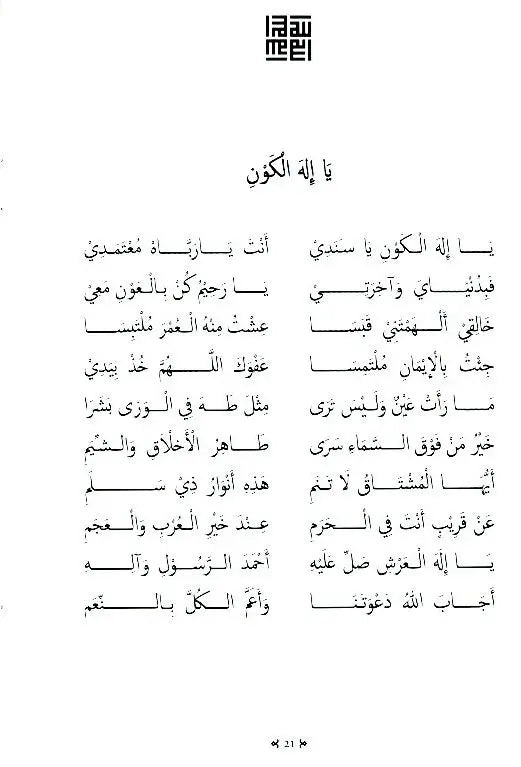 يَا إِلهَ الْكَوْنِ
يَـــا إِلهَ الْـكَوْنِ يَا سَنَدِيْ أَنْتَ يَـــارَبَّـــاهْ مُعْتَمَـدِيْ
فَبِدُنْيَـــايَ وَآخِرَتِـــيْ يَـــا رَحِيْمُ كُنْ بِـالْعَوْنِ مَعِيْ
خَالِقِيْ أَلْـهَمْتَنِيْ قَبَسَـــا عِشْتُ مِنْهُ الْعُمْرَ مُلْتَبِسَـــا
جِئْتُ بِالْإِيْمَانِ مُلْتَمِسَـــا عَفْوَكَ اللّـــهُمَّ خُذْ بِيَدِيْ
مَـــا رَأَتْ عَيْنٌ وَلَيْسَ تَرَى مِثْلَ طـــهَ فِي الْوَرَى بَشَرَا
خَيْرُ مَنْ فَوْقَ السَّمَاءِ سَرَى طَـاهِرُ الْأَخْلَاقِ وَالشِّيَمِ
أَيُّهَـــا الْمُشْتَـاقُ لَا تَـنَمِ هَذِهِ أَنْوَارُ ذِيْ سَـــلَمِ
عَنْ قَرِيْبٍ أَنْتَ فِي الْـحَرَمِ عِنْدَ خَيْرِ الْعُرْبِ وَالْعَجَمِ
يَـــا إِلهَ الْعَرْشِ صَلِّ عَلَيْهِ أَحْمَدَ الرَّسُوْلِ وَآلِـــهِ
أَجَـابَ اللهُ دَعْوَتَنَـــا وَأَعَمَّ الْكُلَّ بِـالـنِّعَمِ
21